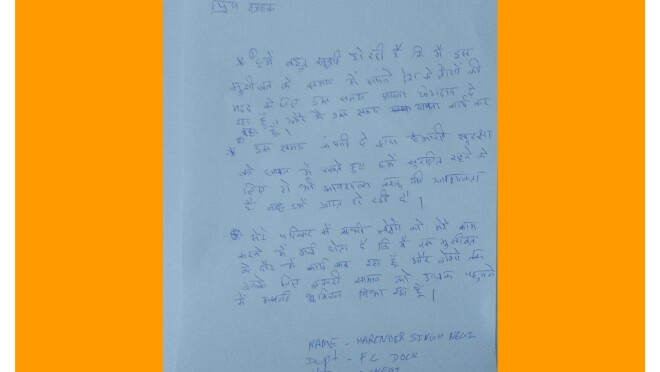 प्रिय
* हमें बहुत खुशी हो रही है कि मैं इस
मुसीबत के समय में अपने देश के लोगों की
मदद के लिए इस समय अपना योगदान दे
रहा हूँ। और मैं इस समय अपना कार्य कर
रहा हूँ।
* इस समय कंपनी के द्वारा हमारी सुरक्षा
को ध्यान में रखते हुए हमें सुरक्षित रहने के
लिए जो भी आवश्यक वस्तु की आवश्यकता
है वह हमें प्राप्त हो रही है।
मेरे परिवार में सभी लोगों को मेरे काम
करने में गर्व होता है कि मैं इस मुसीबत
के दौर में कार्य कर रहा हूँ और लोगों
उनके लिए जरूरी सामान को उनतक पहुचाने
में अपनी भूमिका निभा रहा हूँ।
NAME - HARENDER SINGH NEGI
Dept - FC DOCK